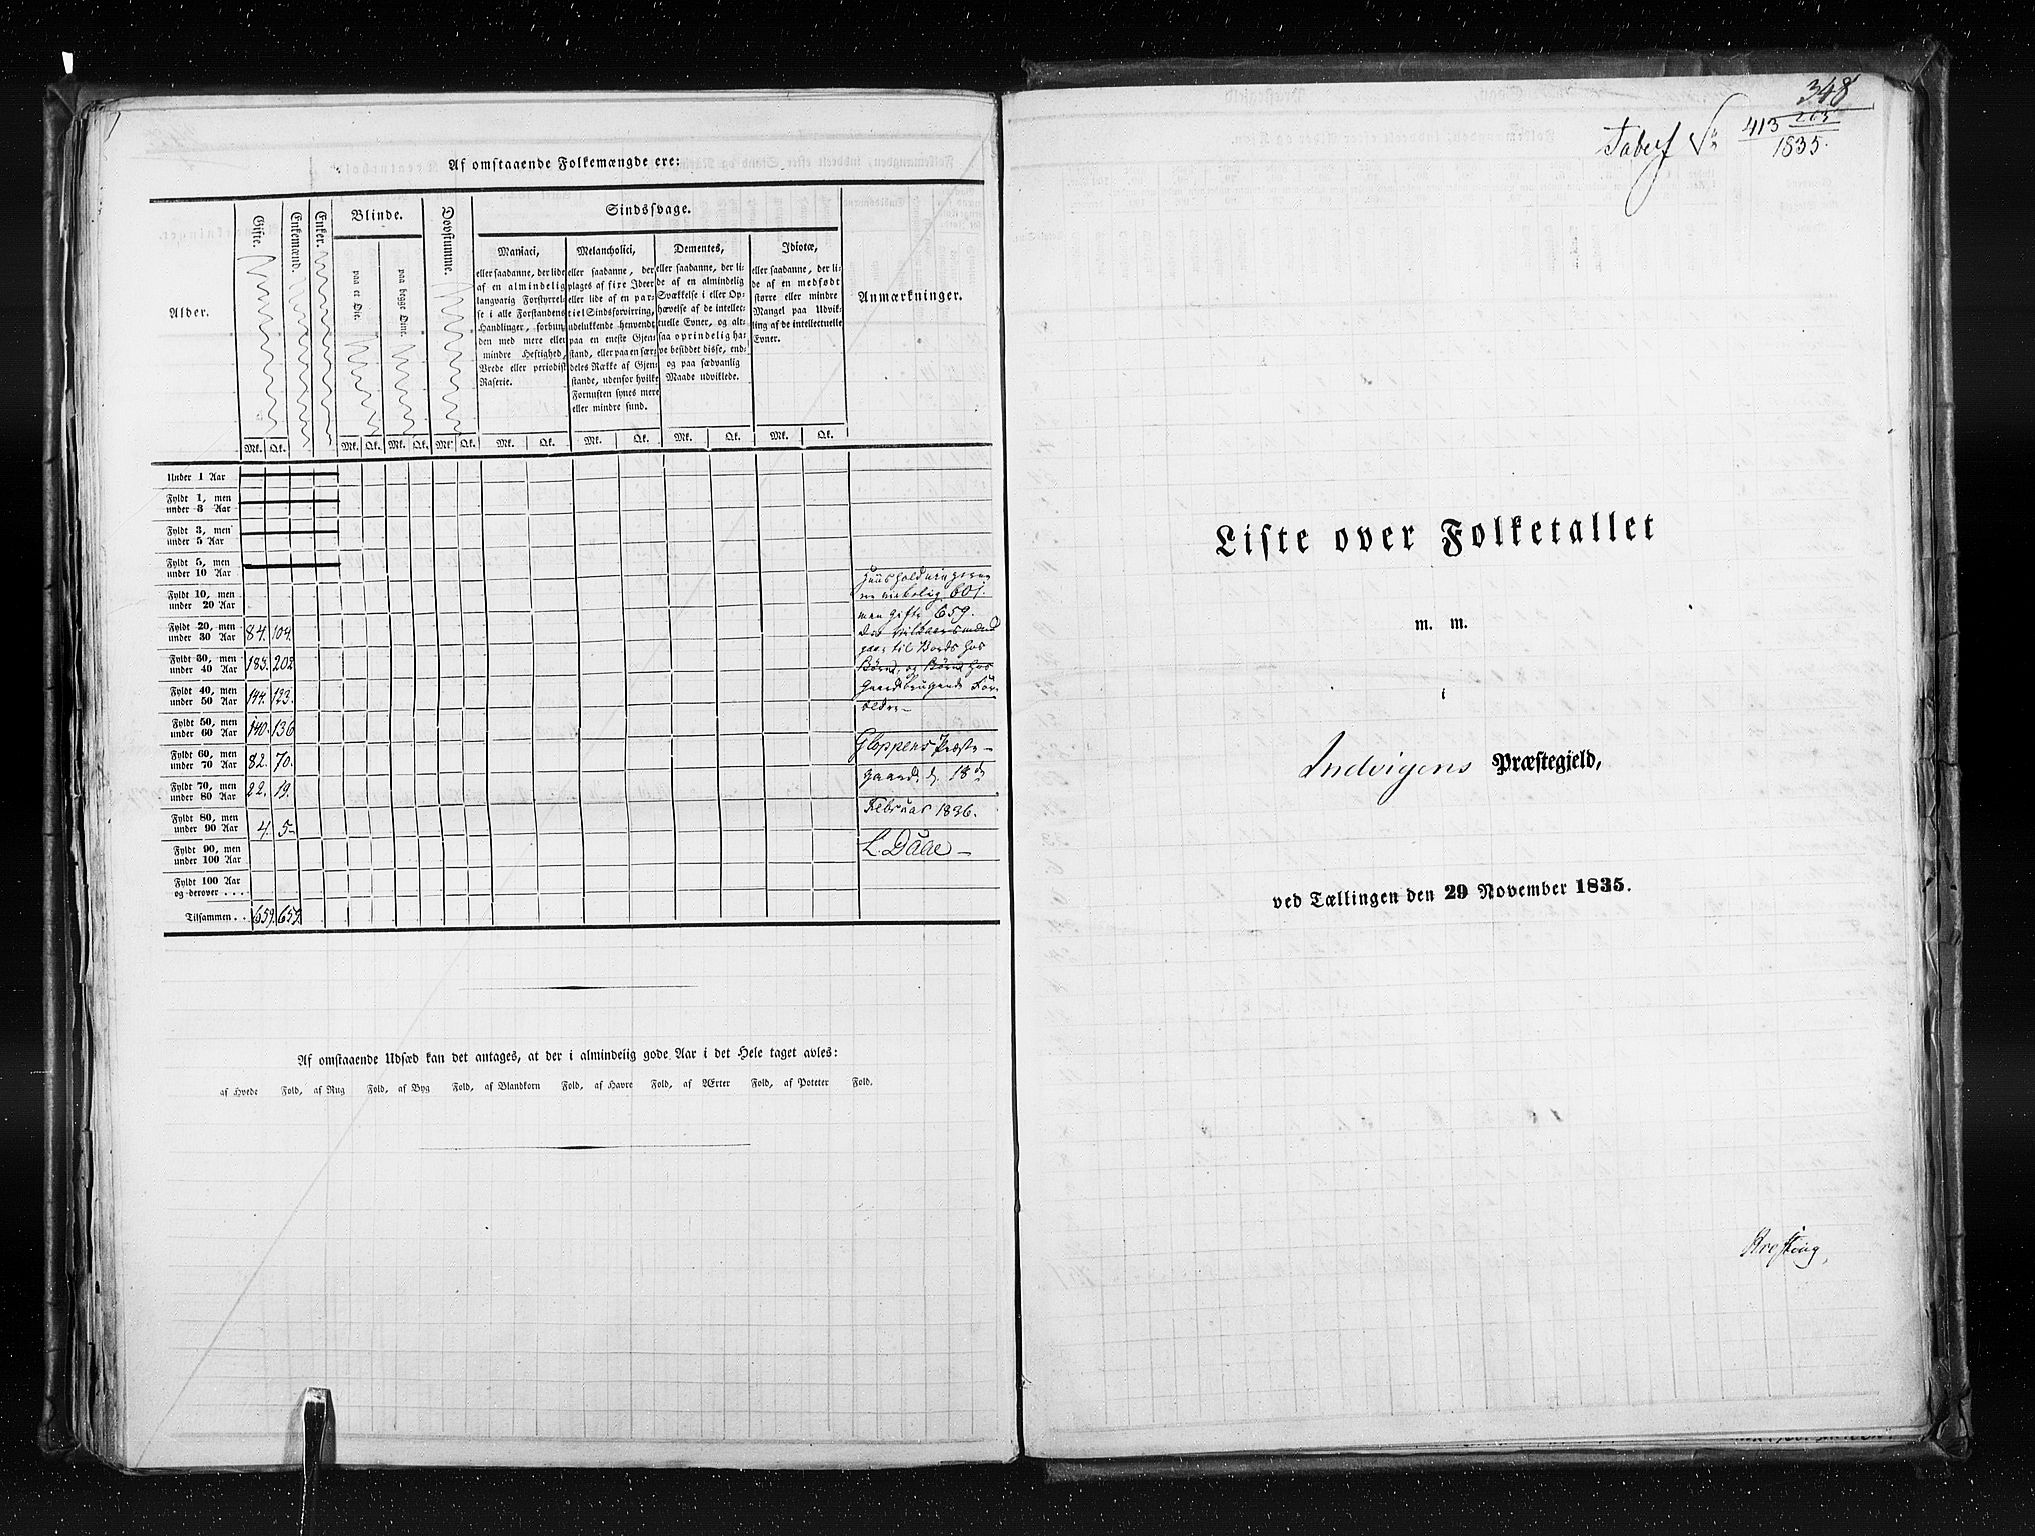 Af omstaaende Folkemængde ere:
Alder.
Gifte.
Enkemænd.
Enker.
Blinde.
paa et Øie.
paa begge Øine.
Døvstumme.
Sindssvage.
Maniaci,
eller saadanne, der lide
af en almindelig
langvarig Forstyrrel-
se i alle Forstandens
Handlinger, forbun-
den med mere eller
mindre Heftighed,
Vrede eller periodisk
Raserie.
Melancholici,
eller saadanne, der
plages af fixe Ideer
eller lide af en par-
tiel Sindsforvirring,
udelukkende henvendt
paa en eneste Gjen-
stand, eller paa en sær-
deles Række af Gjen-
stande, udenfor hvilke
Fornuften synes mere
eller mindre sund.
Dementes,
eller saadanne, der li-
de af en almindelig
Svækkelse i eller Op-
hævelse af de intellec-
tuelle Evner, og alt-
saa oprindelig ha-
ve besiddet disse, end-
og paa sædvanlig
Maade udviklede.
Idiotæ,
eller saadanne, der li-
de af en medfødt
større eller mindre
Mangel paa Udvik-
ling af de intellectuelle
Evner.
Anmærkninger.
Mk. Qk. Mk. Qk. Mk. Qk. Mk. Qk. Mk. Qk. Mk. Qk. Mk. Qk. Mk. Qk.
Under 1 Aar
Fyldt 1, men
under 3 Aar
Fyldt 3, men
under 5 Aar
Fyldt 5, men
under 10 Aar
Fyldt 10, men
under 20 Aar
Fyldt 20, men
under 30 Aar 84. 104.
Fyldt 30, men
under 40 Aar 183. 202
Fyldt 40, men
under 50 Aar 144. 123.
Fyldt 50, men
under 60 Aar 140. 136
Fyldt 60, men
under 70 Aar 82. 70.
Fyldt 70, men
under 80 Aar 22. 19.
Fyldt 80, men
under 90 Aar 4. 5-
Fyldt 90, men
under 100 Aar
Fyldt 100 Aar
og derover . . .
Tilsammen . . 659. 659.
Huusholdningerne
ere virkelig 601.
men Gifte 659.
gaae til Bords hos
Børn, og Børn hos
Gaardbrugende For-
ældre-
Gloppens Præste-
gaard, d. 18de
Februar 1836.
L. Daae -
Af omstaaende Udsæd kan det antages, at der i almindelig gode Aar i det Hele taget avles:
af Hvede Fold, af Rug Fold, af Byg Fold, af Blandkorn Fold, af Havre Fold, af Ærter Fold, af Poteter Fold.
348
413
1835.
Liste over Folketallet
m. m.
i
Indvigens Præstegjeld,
ved Tællingen den 29 November 1835.